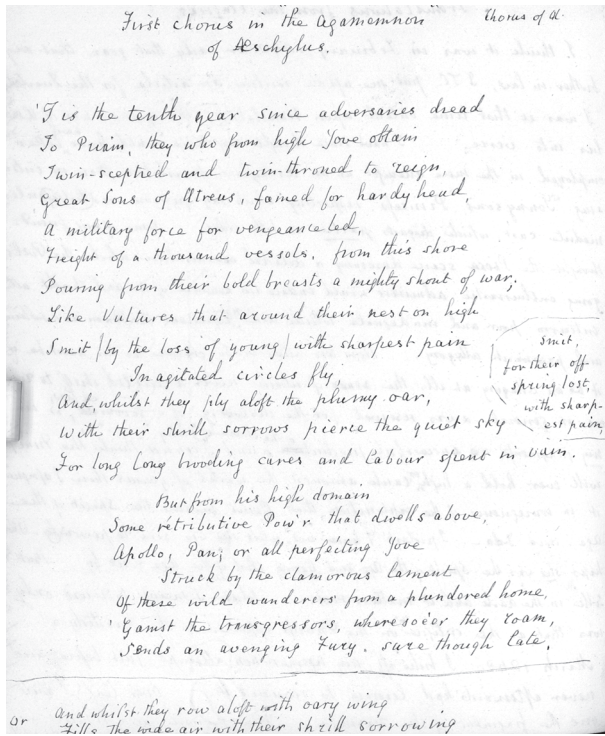 First chorus in the Agamemnon
Chorus of
of Æschylus.
'Tis the tenth year since adversaries dread
To Priam, they who from high Jove obtain
Twin-sceptred and twin-throned to reign,
Great Sons of Atreus, famed for hardyhead,
A military force for vengeance led,
Freight of a thousand vessels, from this shore
Pouring from their bold breasts a mighty shout of war;
Like Vultures that around their nest on high
Smit (by the loss of young) with sharpest pain
In agitated circles fly,
And whilst they ply aloft the plumy oar,
With their shrill sorrows pierce the quiet sky
For long long brooding cares and labour spent in vain.
Smit,
for their off
spring lost,
with sharp-
est pain,
But from his high domain
Some retributive Pow'r that dwells above,
Apollo, Pan, or all perfecting Jove
Struck by the clamorous lament
Of these wild wanderers from a plundered home,
'Gainst the transgressors, wheresoe'er they roam,
Sends an avenging Fury. sure though late.
or
And whilst they row aloft with oary wing
Fills the wide air with their shrill sorrowing